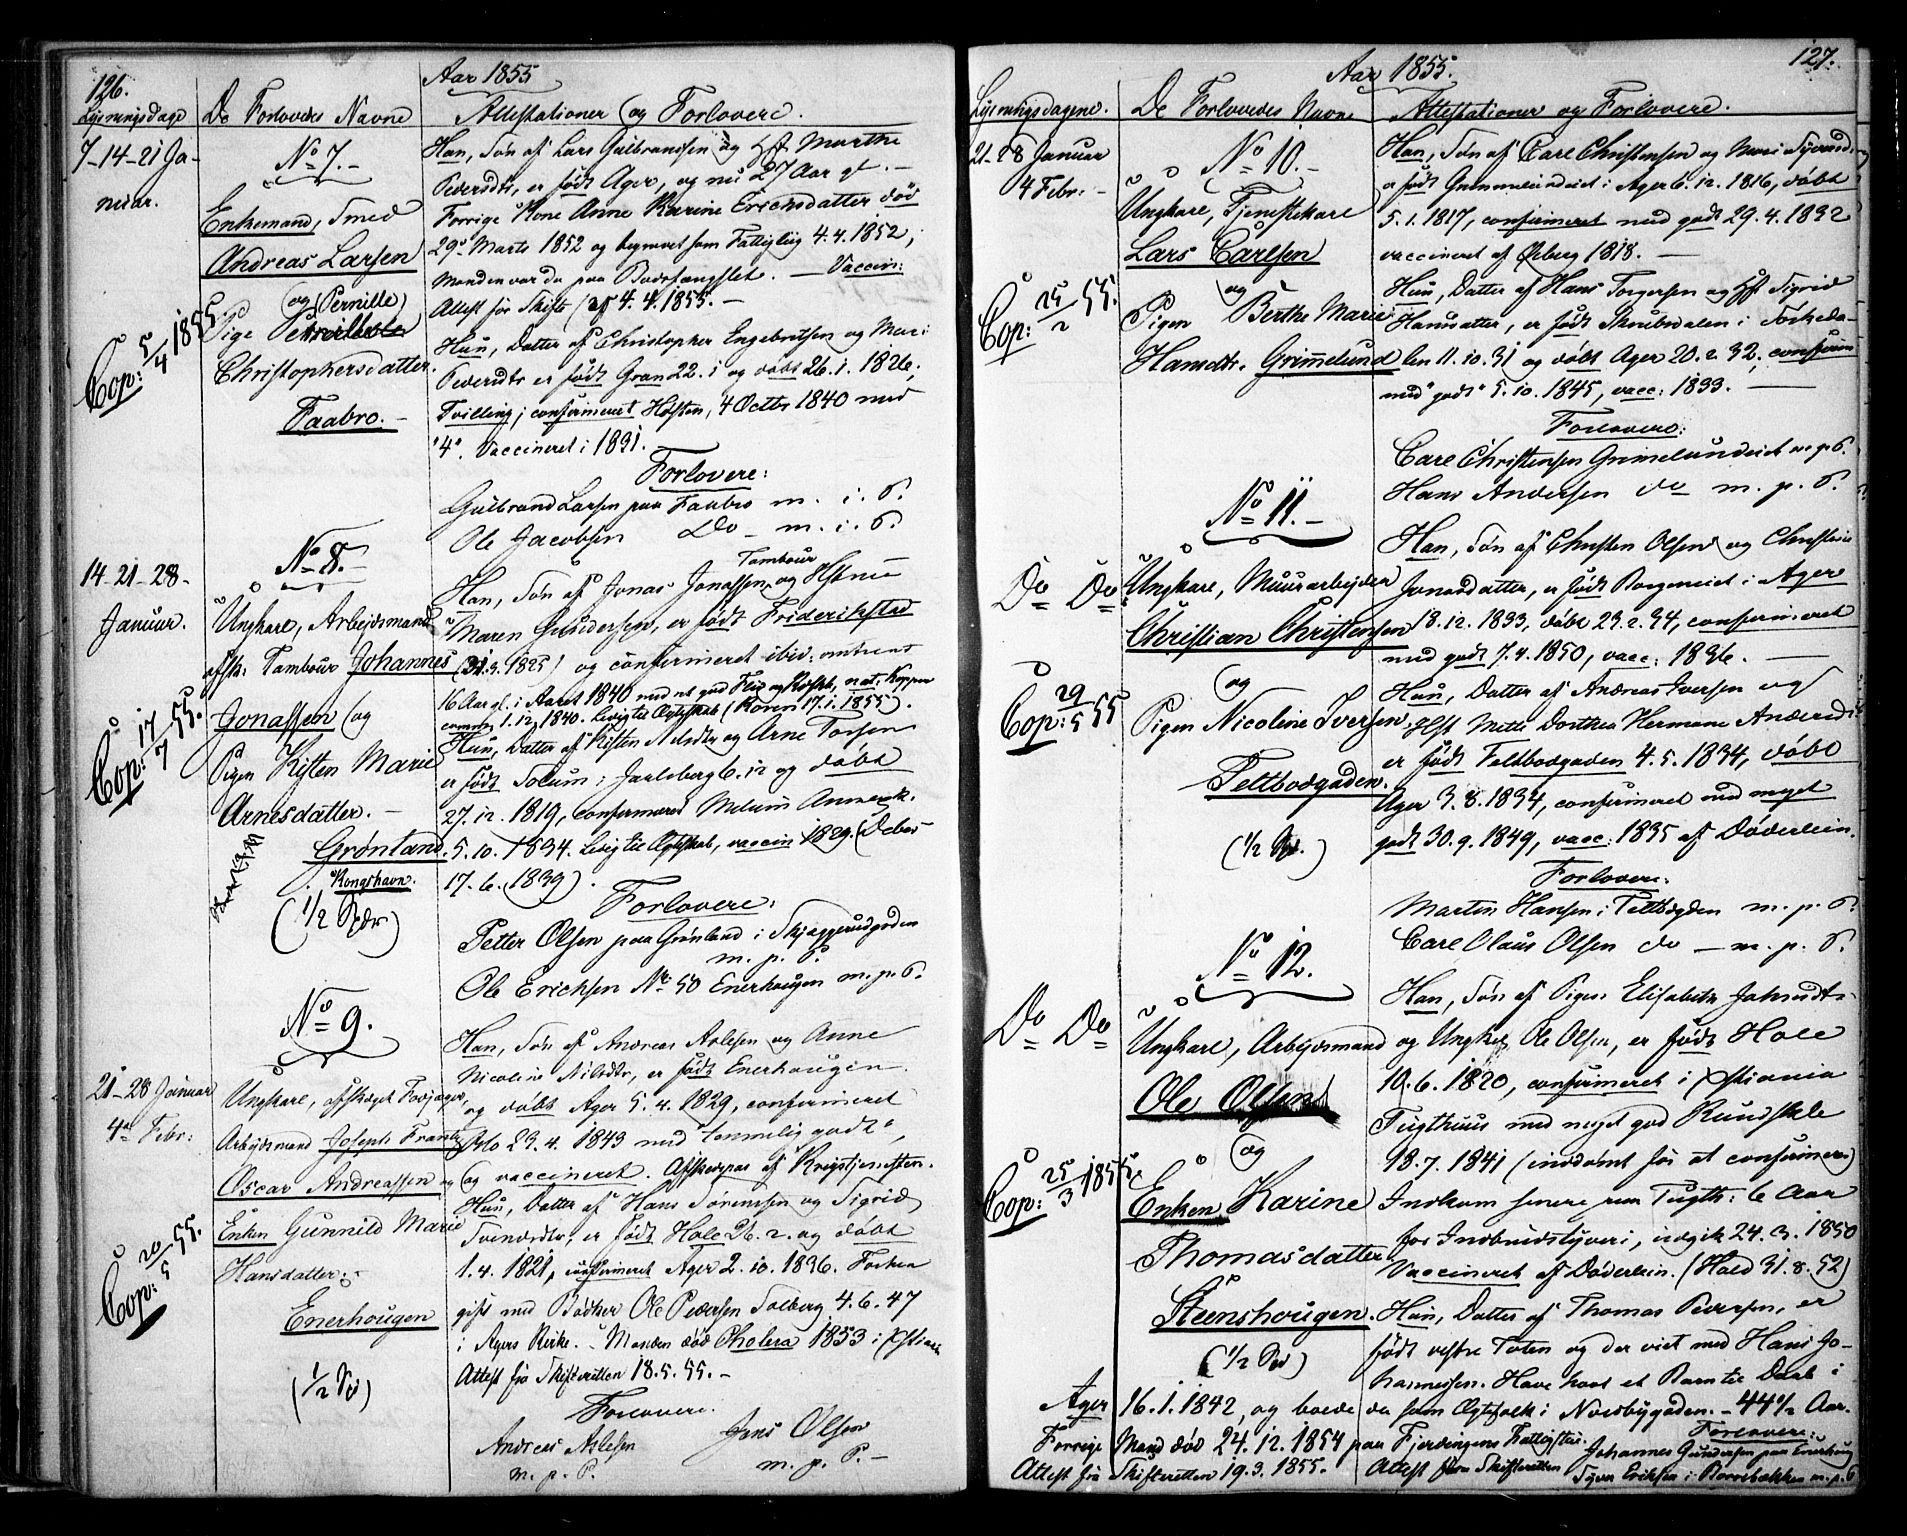 126.
Aar 1855
Lysningsdage De Forlovedes Navne Attestationer og Forlovere.
7-14-21 Ja-
nuar.
No 7.-
Enkemand, Smed
Andreas Larsen
og (Pernille)
Pige
Christophersdatter.
Faabro.-
Cop: 5/4 1855.
Han, Søn af Lars Gulbrandsen og Hst Marthe
Pedersdtr, er født Ager, og nu 27 Aar gl. -
Forrige Kone Anne Karine Erichsdatter død
29 Marts 1852 og begravet som Fattiglig 4.4.1852,
Manden var da paa Bodsfængslet. - Vaccin:
Attest for Skifte af 4.4.1855.-
Hun, Datter af Christopher Engebretsen og Mari
Pedersdtr er født Gran 22.1 og døbt 26.1.1826,
Tvilling; confirmeret Holsten, 4 Octbr 1840 med
"4". Vaccineret i 1831.
Forlovere:
Gulbrand Larsen paa Faabro m. i. P.
Ole Jacobsen Do - m. i. P.
14-21-28-
Januar.
No 8.-
Ungkarl, Arbejdsmand
afsk. Tambour Johannes
Jonassen og
Pigen Kisten Marie
Arnesdatter.-
Grønland.
Kongshavn.
(1/2 Spdr)
Cop: 17/7 55.
Tambour
Han, Søn af Jonas Jonassen og Hstru
Maren Gundersen, er født Friderikstad
(31.3.1825) og confirmeret ibid. omtrent
16 Aar gl. i Aaret 1840 med et god Flid og Kdskb, nat: Kopper
1.12.1840. Ledig til Ægteskab (Horten 17.1.1855).
Hun, Datter af Kisten Nilsdtr og Arne Torsen
er født Solum i Jarlsberg 6.12 og døbt
27.12.1819, confirmered Melum Annex.
5.10.1834. Ledig til Ægteskab, vaccin 1829. (Debes
17.6.1839).
Forlovere:
Petter Olsen paa Grønland i Skjæggerudgaden
m. p. P.
Ole Erichsen No 50 Enerhougen m. p. P.
21-28 Januar
4de Febr:
No 9.
Ungkarl, afskeget
Arbejdsmand Joseph Frantz
Oscar Andreassen og
Enken Gunnild Marie
Hansdatter:
Enerhougen
(1/2 Sp)
Cop: 20/5 55.
Han, Søn af Andreas Aslesen og Anne
Nicoline Nilsdtr, er født Enerhougen.
og døbt Ager 5.4.1829, confirmeret
Oslo 23.4.1843 med temmelig godt,
og vaccineret. Afskedspas af Krigstjenesten.
Hun, Datter af Hans Sørensen og Sigrid
Svensdtr, er født Hole 26.2. og døbt
1.4.1821, confirmeret Ager 2.10.1836. Forhen
gift med Bødker Ole Pedersen Solberg 4.6.47
i Agers Kirke. - Manden død Cholera 1853 i Xstiania
Attest fra Skifteretten 18.5.55.-
Forlovere.
Andreas Aslesen Jens Olsen
m. p. P. m. p. P.-
127.
Aar 1855.
Lysningsdagene. De Forlovedes Navne Attestationer og Forlovere.
21-28 Januar
4 Febr:-
No 10.-
Ungkarl, Tjenestekarl
Lars Carlsen
og
Pigen Berthe Marie
Hansdtr. Grimelund
Cop: 25/2 55.
Han, Søn af Carl Christensen og Mari
er født Grimelundeiet i Ager 6.12.1816, døbt
5.1.1817, confirmeret med godt 29.4.1832
vaccineret af Ørberg 1818. -
Hun, Datter af Hans Torgersen og Hst Sigrid
Hansdatter, er født Skrubsdalen i Sørkeda-
len 11.10.31 og døbt Ager 20.2.32, confirm
med godt 5.10.1845, vacc: 1833. -
Forlovere:
Carl Christensen Grimelundeiet m. p. P.
Hans Andersen do m. p. P.
Do Do
No 11.-
Ungkarl, Muurarbejder
Christian Christensen
og
Pigen Nicoline Iversen.
Teltbodgaden.
(1/2 Sp.)
Cop: 29/5 55
Han, Søn af Christen Olsen og Christine
Jonsdatter, er født Borgeneiet i Ager
18.12.1833, døbt 23.2.34, confirmeret
med godt 7.4.1850, vacc: 1836. -
Hun, Datter af Andreas Iversen og
Hst Mette Dorthea Hermine Andersdtr
er født Teltbodgaden 4.5.1834, døbt
Ager 3.8.1834, confirmeret med meget
godt 30.9.1849, vacc: 1835 af Døderlein.
Forlovere:
Martin Hansen i Teltbogden m. p. P.
Carl Olaus Olsen do - m. p. P.
Do Do
No 12.
Ungkarl, Arbejdsmand
Ole Olsen
og
Enken Karine
Thomasdatter
Steenshougen.
(1/2 Sp)
Cop: 25/3 1855.
Han, Søn af Pigen Elisabeth Johnsdtr
og Ungkarl Ole Olsen, er født Hole
10.6.1820, confirmeret i Xstiania
Tugthuus med meget god Kundskab
18.7.1841 (inddømt for at confirmeres)
Indkom senere paa Tugth: 6 Aar
for Indbrudstyveri, udgik 24.3.1850
Vaccineret af Døderlein. (Hold 31.8.52)
Hun, Datter af Thomas Pedersen, er
født vestre Toten og der viet med Hans Jo-
hannessen. Have havt et Barn til Daab i
Ager 16.1.1842, og boede da som Ægtefolk i Nordbygaden. - 44 1/2 Aar.
Forrige Mand død 24.12.1854 paa Fjerdingens Fattigstue.
Attest fra Skifteretten 19.3.1855. Attest fra Skifteretten
Forlovere:
Johannes Gundersen paa Enerhaug
Syver Eriksen i m. p. P